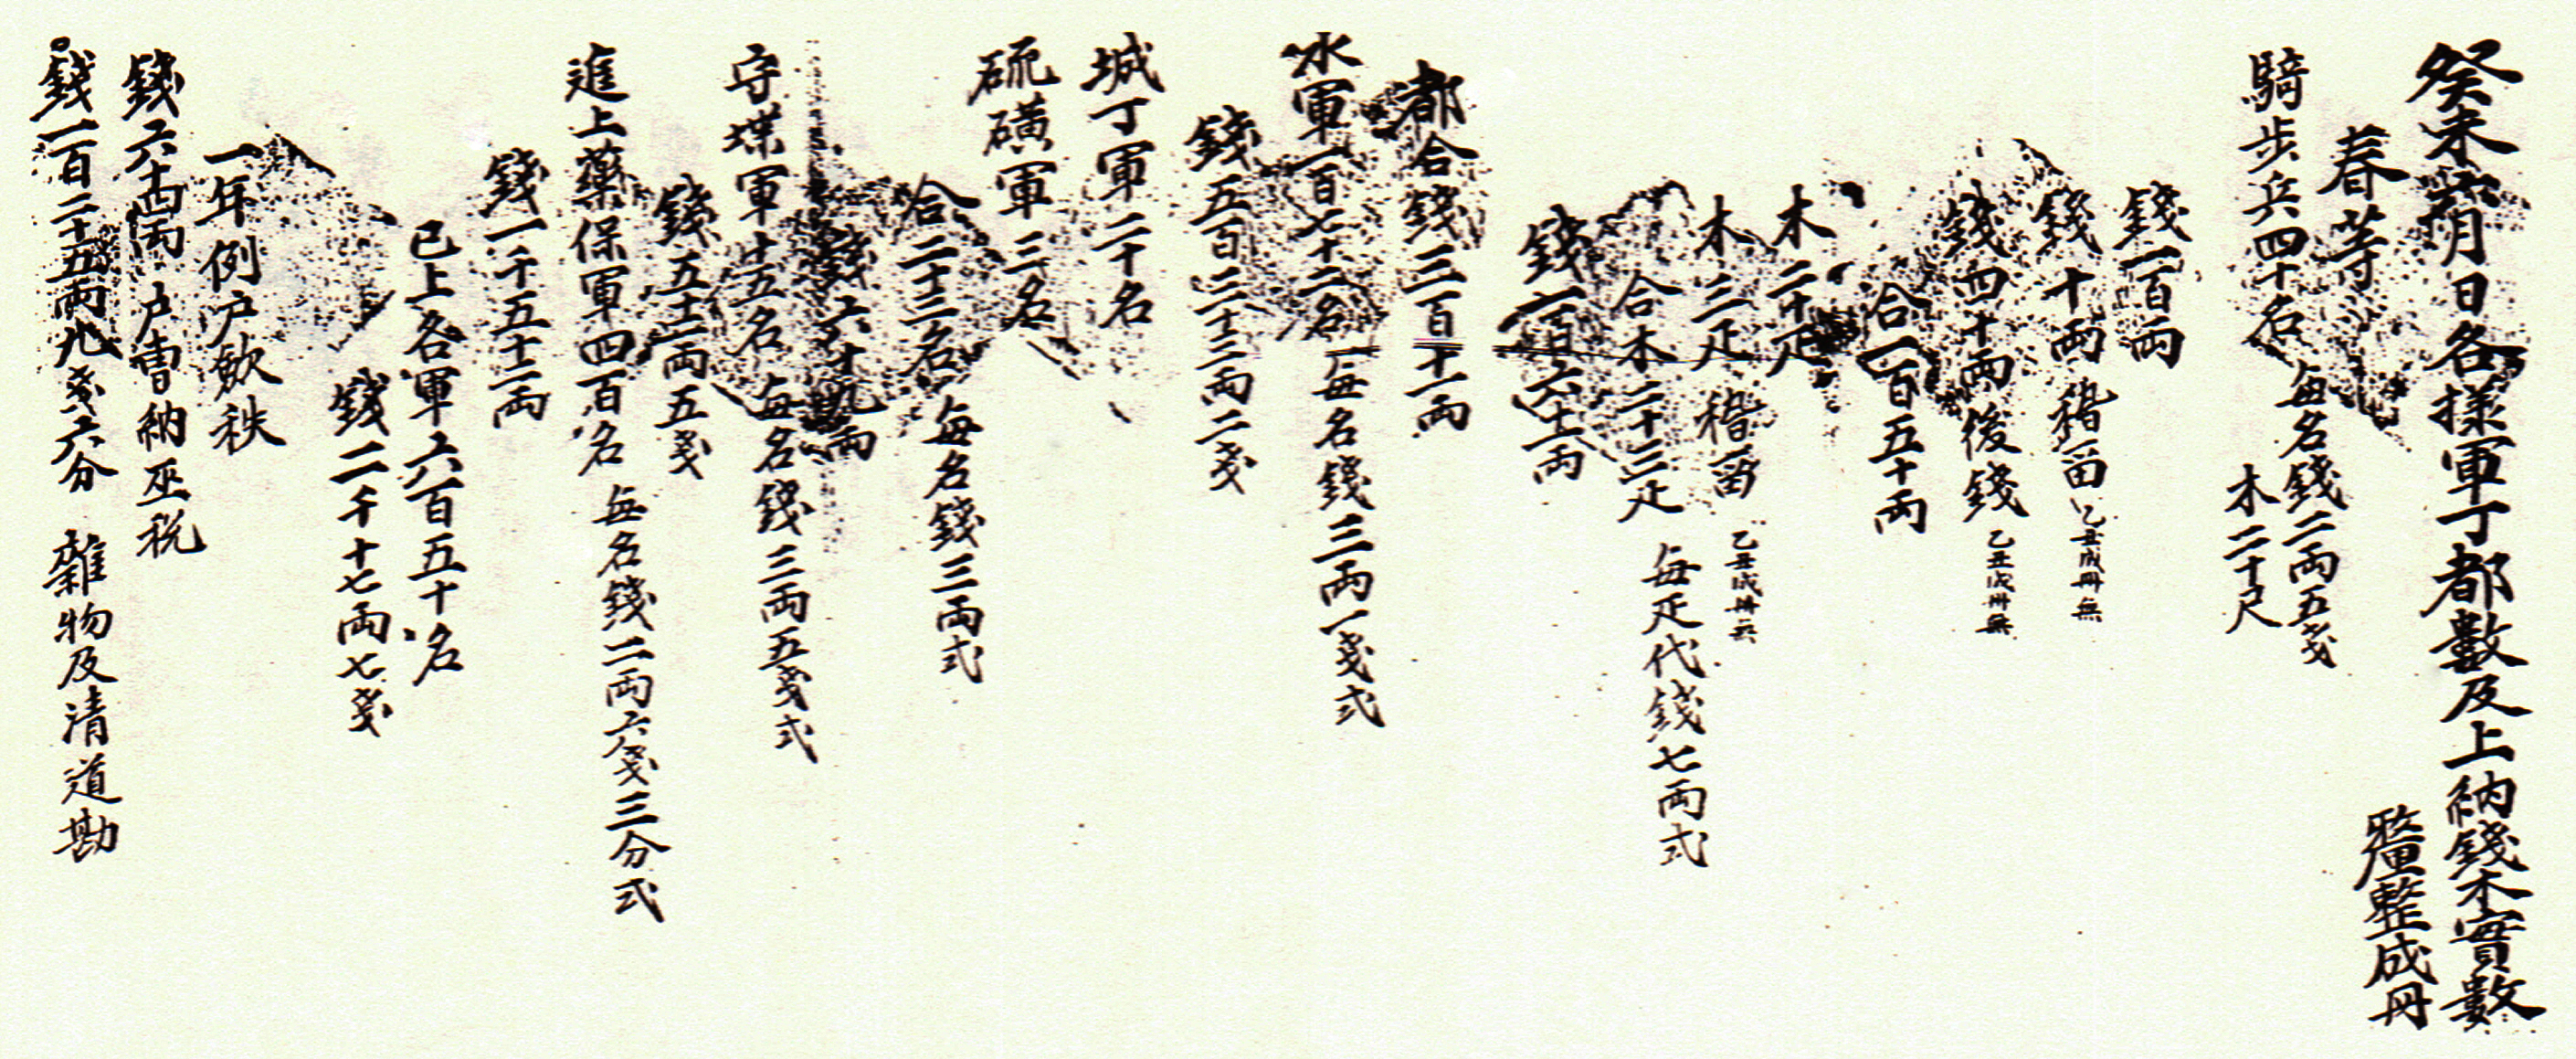 癸未朔日各樣軍丁都數及上納錢木實數
釐整成冊
春等
騎步兵四十名 每名錢二兩五戔
木二十尺
錢一百兩
錢十兩 稽留 乙丑成冊無
錢四十兩後錢 乙丑成冊無
合一百五十兩
木二十疋
木三疋 稽留 乙丑成冊無
合木二十三疋 每疋代錢七兩式
錢一百六十一兩
都合錢三百十一兩
水軍一百七十二名 每名錢三兩一戔式
錢五百三十三兩二戔
城丁軍二十名
硫磺軍三名
合二十三名 每名錢三兩式
錢六十九兩
守堞軍十五名 每名錢三兩五戔式
錢五十二兩五戔
進上藥保軍四百名 每名錢二兩六戔三分式
錢一千五十二兩
已上各軍六百五十名
錢二千十七兩七戔
一年例戶歛秩
錢六十四兩 戶曹納巫稅
錢一百二十五兩九戔六分 雜物及淸道勘